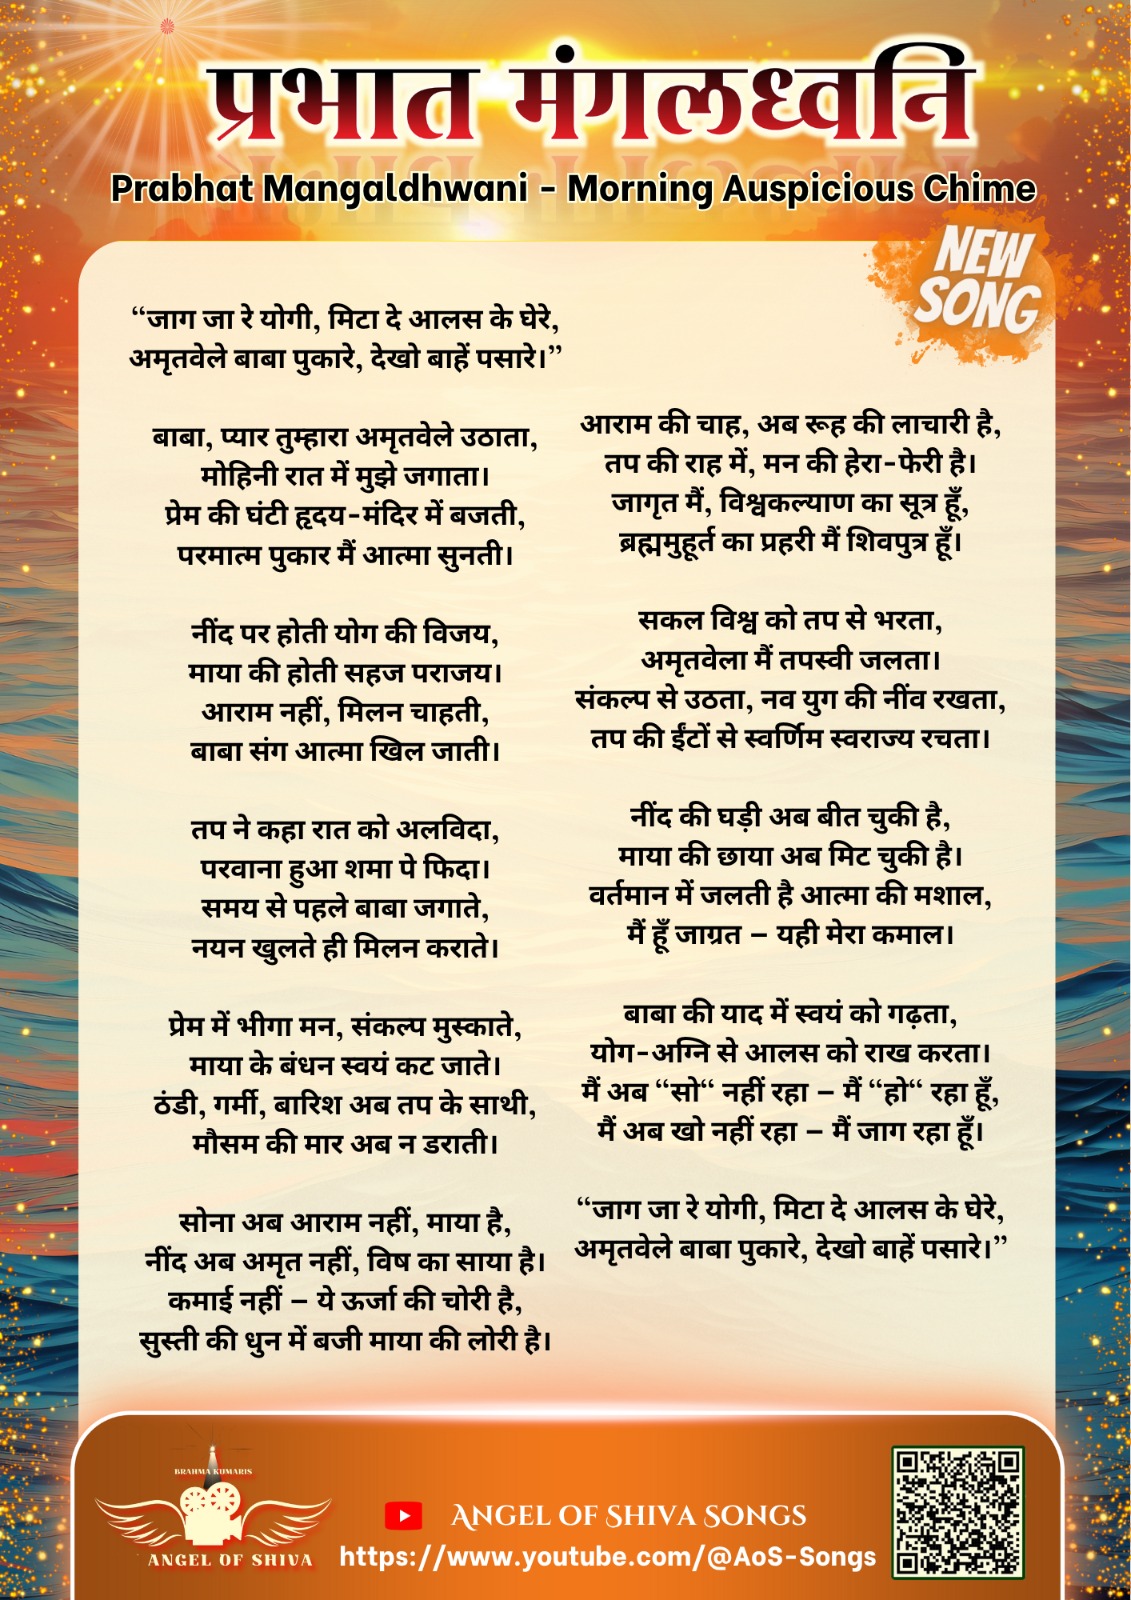 प्रभात मंगलध्वनि
Prabhat Mangaldhwani - Morning Auspicious Chime
NEW
SONG
“जाग जा रे योगी, मिटा दे आलस के घेरे,
अमृतवेले बाबा पुकारे, देखो बाहें पसारे।”
बाबा, प्यार तुम्हारा अमृतवेले उठाता,
मोहिनी रात में मुझे जगाता।
प्रेम की घंटी हृदय-मंदिर में बजती,
परमात्म पुकार मैं आत्मा सुनती।
नींद पर होती योग की विजय,
माया की होती सहज पराजय।
आराम नहीं, मिलन चाहती,
बाबा संग आत्मा खिल जाती।
तप ने कहा रात को अलविदा,
परवाना हुआ शमा पे फिदा।
समय से पहले बाबा जगाते,
नयन खुलते ही मिलन कराते।
प्रेम में भीगा मन, संकल्प मुस्काते,
माया के बंधन स्वयं कट जाते।
ठंडी, गर्मी, बारिश अब तप के साथी,
मौसम की मार अब न डराती।
सोना अब आराम नहीं, माया है,
नींद अब अमृत नहीं, विष का साया है।
कमाई नहीं – ये ऊर्जा की चोरी है,
सुस्ती की धुन में बजी माया की लोरी है।
आराम की चाह, अब रूह की लाचारी है,
तप की राह में, मन की हेरा-फेरी है।
जागृत मैं, विश्वकल्याण का सूत्र हूँ,
ब्रह्ममुहूर्त का प्रहरी मैं शिवपुत्र हूँ।
सकल विश्व को तप से भरता,
अमृतवेला मैं तपस्वी जलता।
संकल्प से उठता, नव युग की नींव रखता,
तप की ईंटों से स्वर्णिम स्वराज्य रचता।
नींद की घड़ी अब बीत चुकी है,
माया की छाया अब मिट चुकी है।
वर्तमान में जलती है आत्मा की मशाल,
मैं हूँ जाग्रत – यही मेरा कमाल।
बाबा की याद में स्वयं को गढ़ता,
योग-अग्नि से आलस को राख करता।
मैं अब “सो“ नहीं रहा – मैं “हो“ रहा हूँ,
मैं अब खो नहीं रहा – मैं जाग रहा हूँ।
“जाग जा रे योगी, मिटा दे आलस के घेरे,
अमृतवेले बाबा पुकारे, देखो बाहें पसारे।”
BRAHMA KUMARIS
ANGEL OF SHIVA
ANGEL OF SHIVA SONGS
https://www.youtube.com/@AoS-Songs